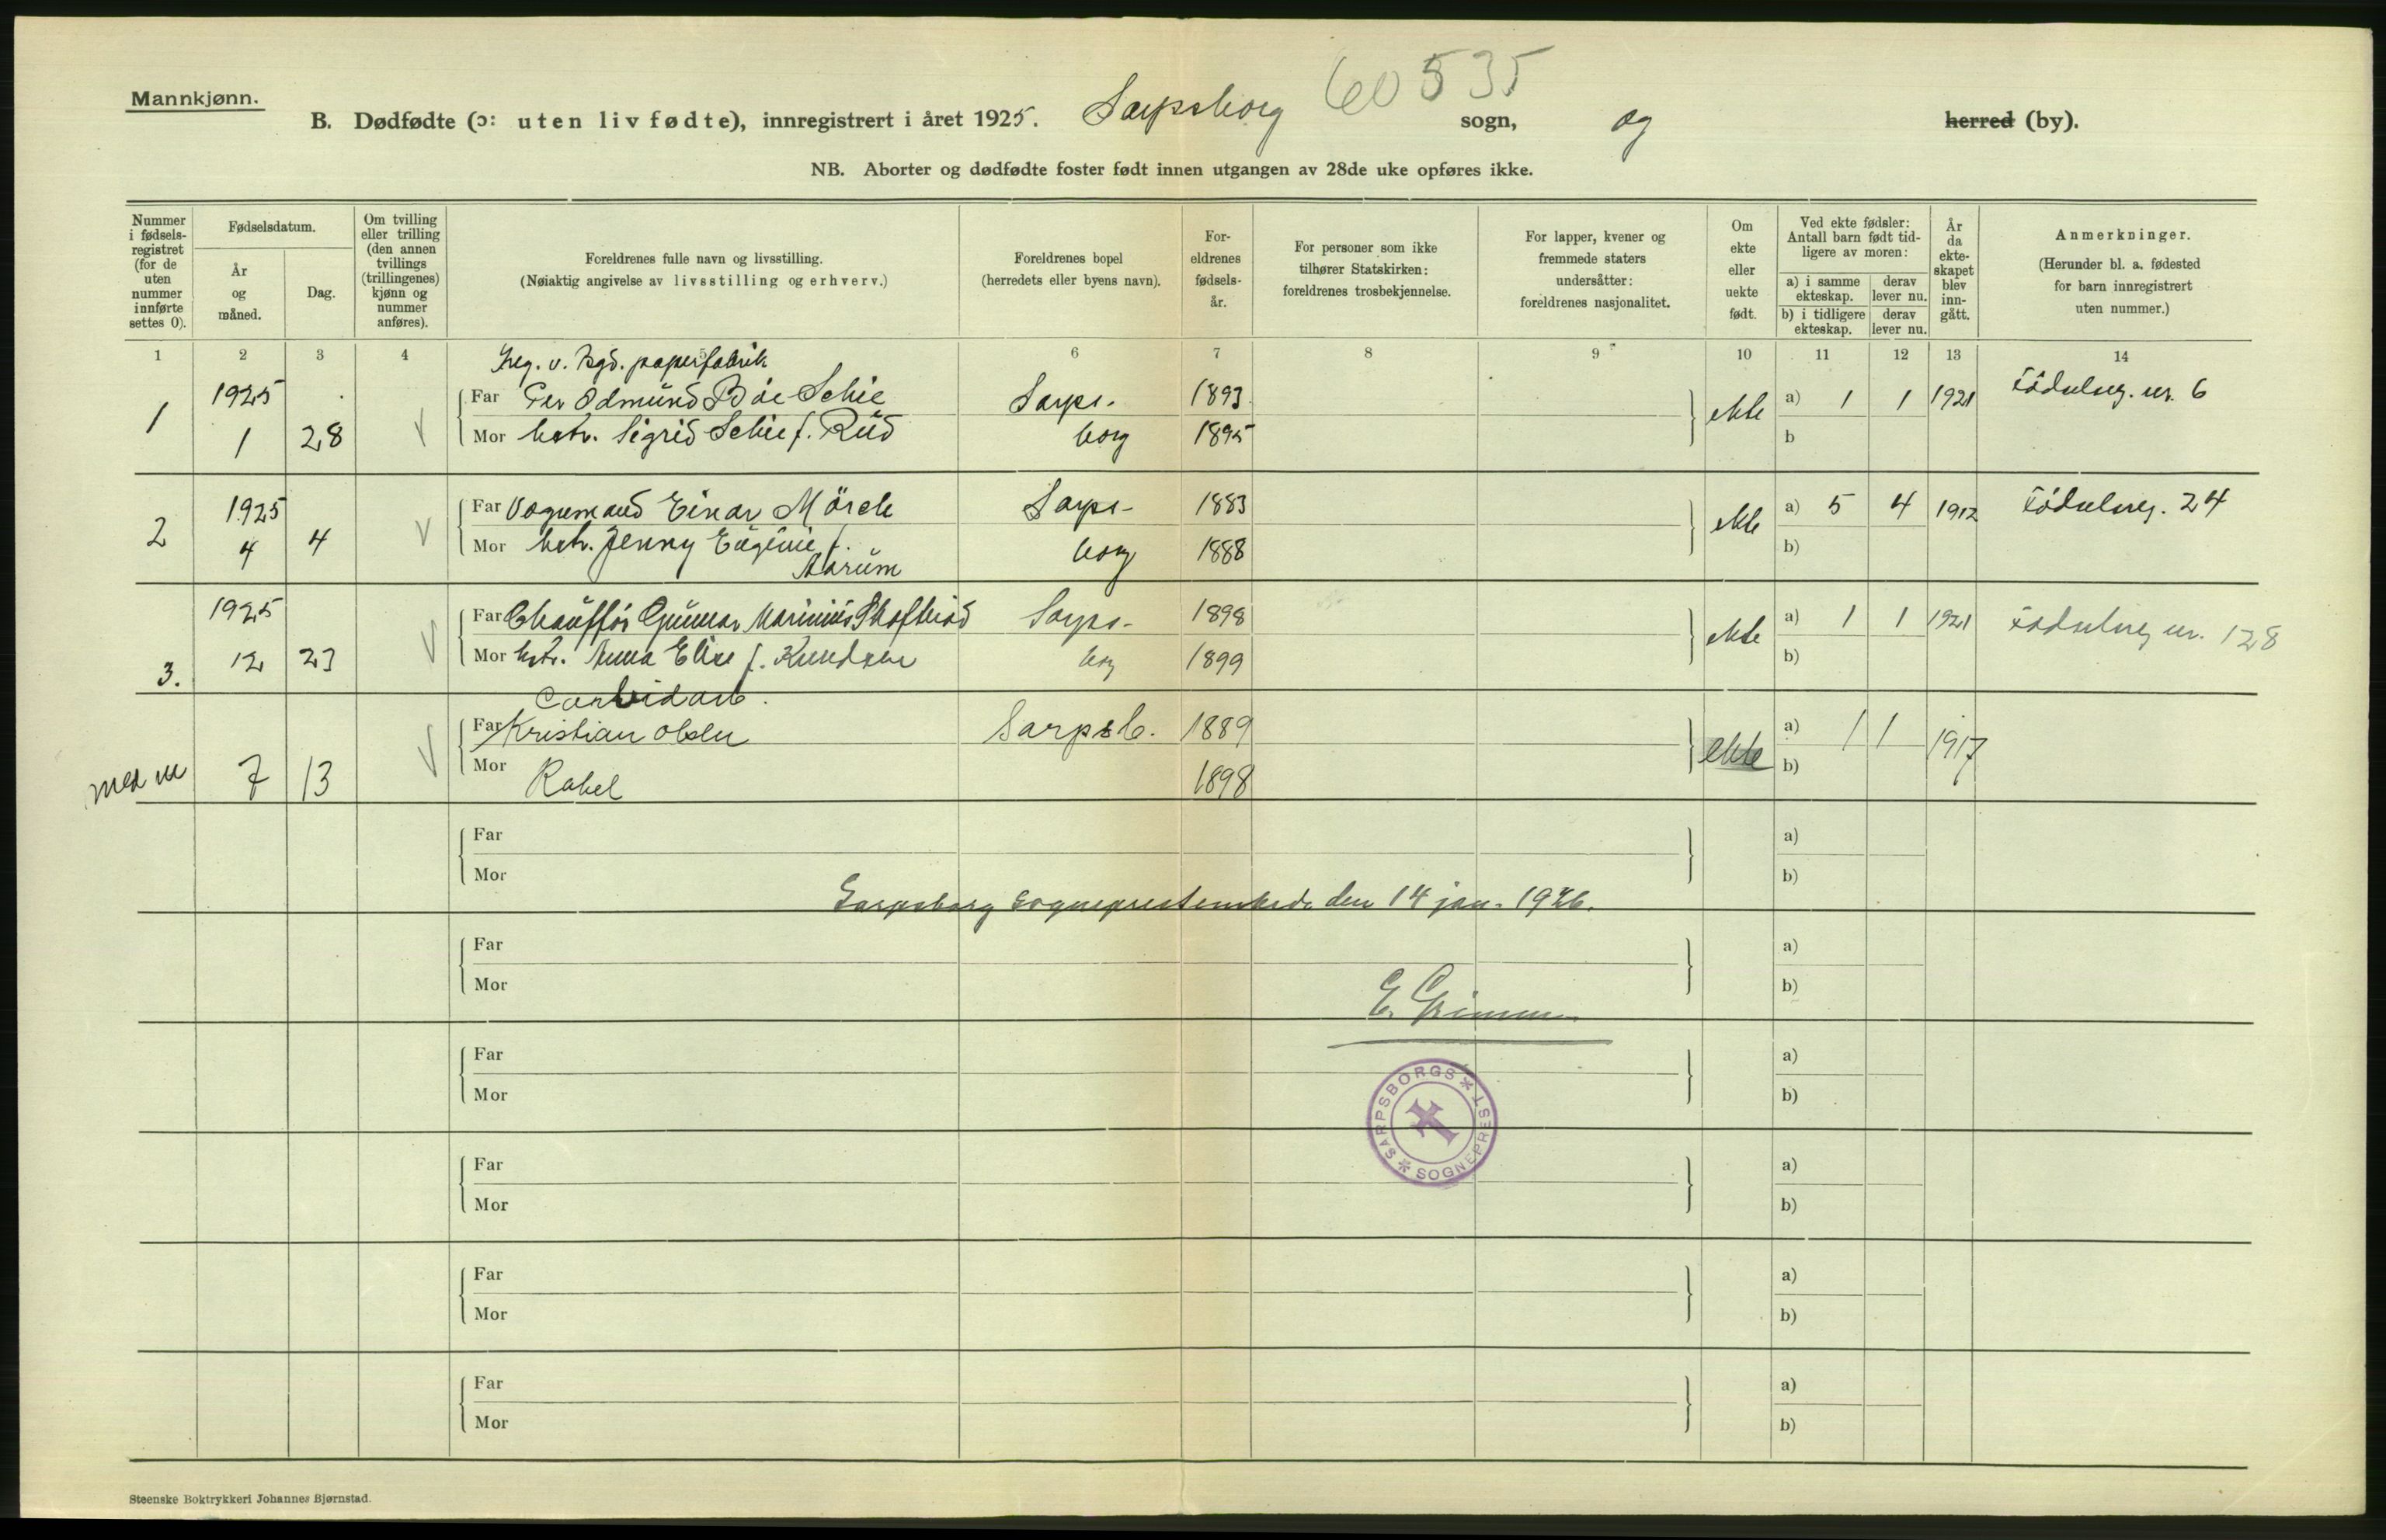 Mannkjønn.
60 535
B. Dødfødte (ɔ: uten liv fødte), innregistrert i året 1925. Sarpsborg sogn, og herred (by).
NB. Aborter og dødfødte foster født innen utgangen av 28de uke opføres ikke.
Nummer i fødsels-registret (for de uten nummer innførte settes 0).
Fødselsdatum.
År og måned.
Dag.
Om tvilling eller trilling (den annen tvillings (trillingenes) kjønn og nummer anføres).
Foreldrenes fulle navn og livsstilling.
(Nøiaktig angivelse av livsstilling og erhverv.)
Foreldrenes bopel
(herredets eller byens navn).
For-eldrenes fødsels-år.
For personer som ikke tilhører Statskirken: foreldrenes trosbekjennelse.
For lapper, kvener og fremmede staters undersåtter: foreldrenes nasjonalitet.
Om ekte eller uekte født.
Ved ekte fødsler: Antall barn født tid-ligere av moren:
a) i samme ekteskap. derav lever nu.
b) i tidligere ekteskap. derav lever nu.
År da ekte-skapet blev inn-gått.
Anmerkninger.
(Herunder bl. a. fødested for barn innregistrert uten nummer.)
1 2 3 4 5 6 7 8 9 10 11 12 13 14
v. papirfabrik
1 1925 Far Per Odmund Böe Schie Sarps- 1893 ekte a) 1 1 1921 Födselreg. nr. 6
1 28 V Mor hstr. Sigrid Schie f. Rüd borg 1895 b
2 1925 Far Vognmand Einar Mörch Sarps- 1883 ekte a) 5 4 1912 Födselreg. 24
4 4 V Mor hstr. Jenny Eugenie f. borg 1888 b)
Aarum
3. 1925 Far Chaufför Gunnar Marinius Sarps- 1898 ekte a) 1 1 1921 Födselreg nr. 128
12 23 V Mor hstr. Anna Elise f. Knudsen borg 1899 b)
Carbidarb.
Far Kristian Olsen Sarpsb. 1889 ekte a) 1 1 1917
med m 7 13 V Mor Rakel 1898 b)
Far a)
Mor b)
Sarpsborg Sogneprestembede den 14 jan. 1926.
Far a)
Mor b)
E.
Far a)
Mor b)
SARPSBORGS * SOGNEPREST *
Far a)
Mor b)
Far a)
Mor b)
Far a)
Mor b)
Steenske Boktrykkeri Johannes Bjørnstad.